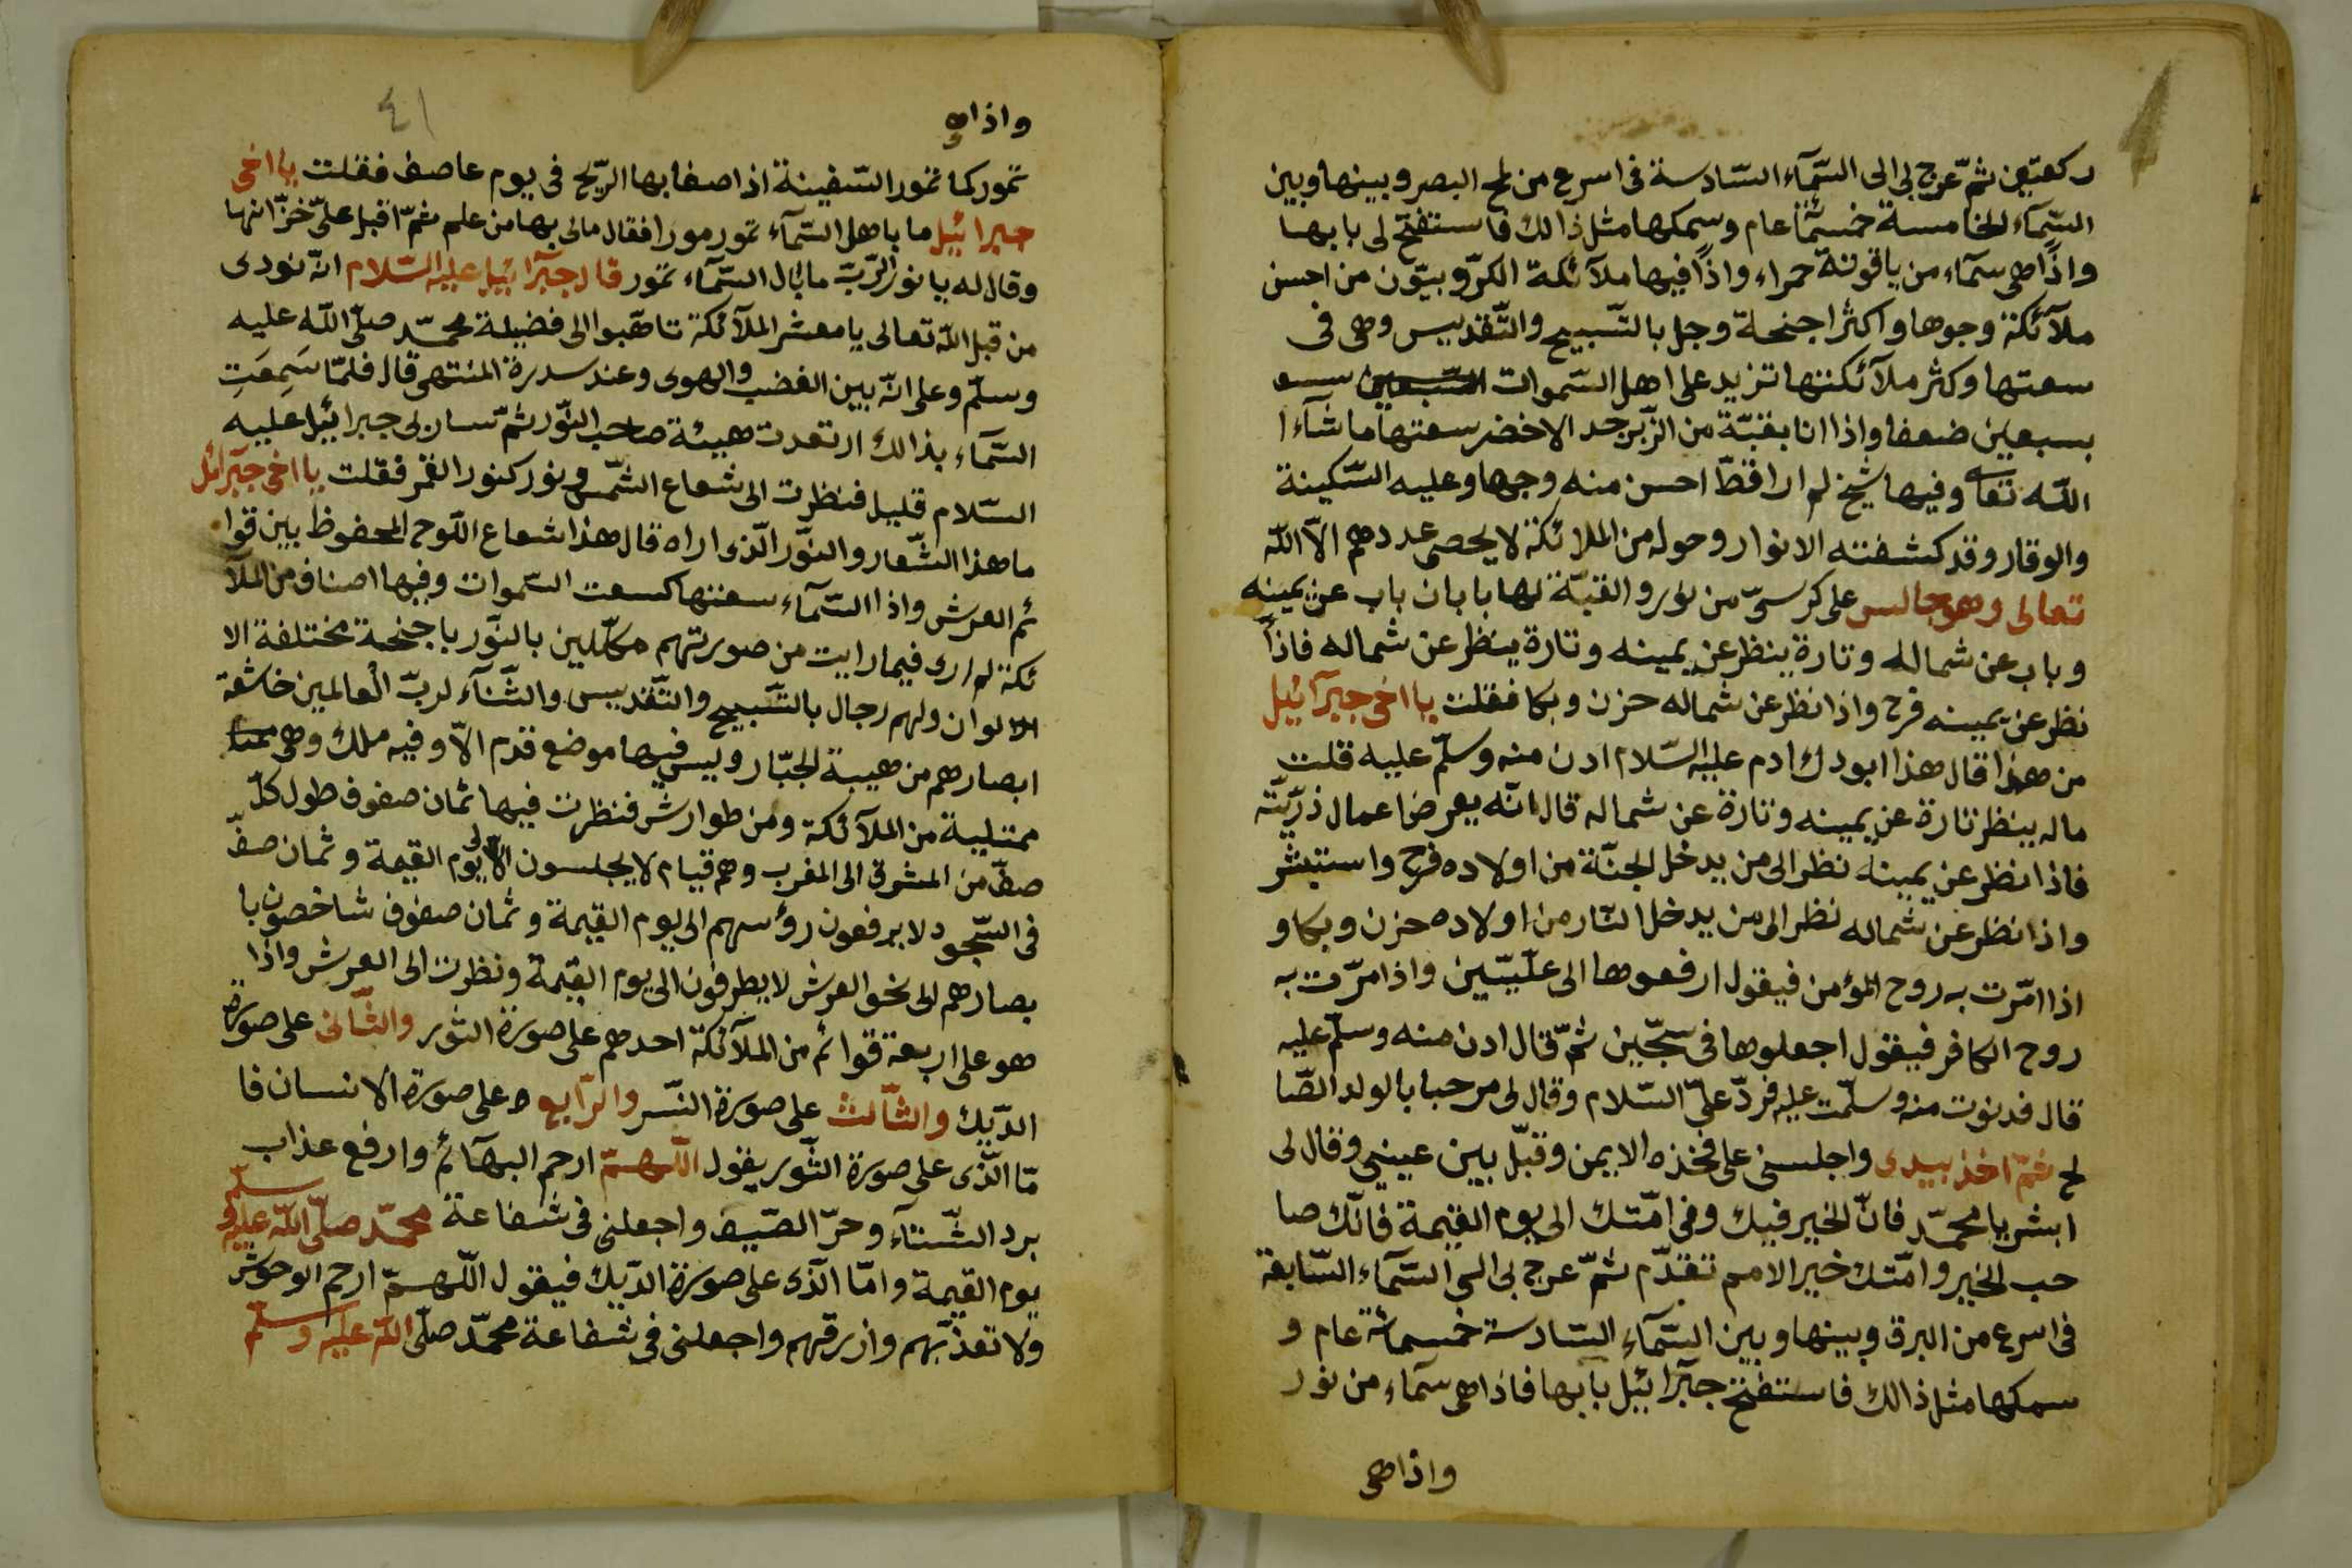 ركعتين ثمّ عرج بى الى السّمآء السّادسة فى اسرع من لمح البصر وبينها وبين
السّمآء الخامسة خمسمّائة عام وسمكها مثل ذالك فاستفتح لى بابها
واذًا هى سمآء من ياقوتة حمراء واذًا فيها ملآئكة الكرّوبيّون من احسن
ملآئكة وجوها واكثر اجنحلة وجل بالتّسبيح والتّقديس وهى فى
سعتها وكثر ملآئكتها تزيد على اهل السّموات السّبعين سبع
بسبعين ضعفا واذا انا بقبّة من الزّبرجد الاخضر سعتها ما شآء ا
اللّه تعالى وفيها شيخ لم ارا قطّ احسن منه وجها وعليه السّكينة
والوقار وقد كشفته الانوار وحوله من الملائكة لا يحصى عددهم الّا اللّه
تعالى وهو جالس على كرسىّ من نور والقبّة لها بابان باب عن يمينه
وباب عن شماله وتارة ينظر عن يمينه وتارة ينظر عن شماله فاذاً
نظر عن يمينه فرح واذا نظر عن شماله حزن وبكا فقلت يا اخى جبرآئيل
من هذا قال هذا ابودك ادم عليه السّلام ادن منه وسلّم عليه قلت
ماله ينظر تارة عن يمينه وتارة عن شماله قال انّه يعرض اعمال ذرّيّته
فاذا نظر عن يمينه نظر الى من يدخل الجنّة من اولاده فرح واستبشر
واذا نظر عن شماله نظر الى من يدخل النّار من اولاده حزن وبكا و
اذا امّرت به روح المؤمن فيقول ارفعوها الى علّيّين واذا مرّت به
روح الكافر فيقول اجعلوها فى سجّين ثمّ قال ادن منه وسلّم عليه
قال فدنوت منه وسلّمت عليه فردّ علىّ السّلام وقال لى مرحبا بالولد الصّا
لح ثمّ اخذ بيدى واجلسنى على فخذه الايمن وقبّل بين عينيى وقال لى
ابشر يا محمّد فانّ الخير فيك وفى امّتك الى يوم القيمة فانّك صا
حب الخير وامّتك خير الامم تقدّم ثمّ عرج بى الى السّمآء السّابعة
فى اسرع من البرق وبينها وبين السّمآء السّادسة خمسمائة عام و
سمكها مثل ذالك فاستفتح جبرآئيل بابها فاذا هى سمآء من نور
واذا هى
واذا هى
٤١
تمور كما تمور السّفينة اذا صفا بها الرّيح فى يوم عاصف فقلت يا اخى
جبرائيل ما با هل السّمآء تمور مورا فقال مالى بها من علم ثمّ اقبل علىّ خزّانها
وقال له يا نور الرّبّ ما بال السّمآء تمور قال جبرآئيل عليه السّلام انّه نودى
من قبل اللّه تعالى يا معشر الملآئكة تاهّبوا الى فضيلة محمّد صلّى اللّه عليه
وسلّم وعلى انّه بين الغضب والهوى وعند سدرة المنتهى قال فلمّا سَمِعَتِ
السّمآء بذالك ارتعدت هيئة صاحب النّور ثمّ سار بى جبرائيل عليه
السّلام قليل فنظرت الى شعاع الشّمس ونور كنور القمر فقلت يا اخى جبرآئل
ما هذا الشّعار والنّور الّذى اراه قال هذا شعاع اللّوح المحفوظ بين قوا
ئم العرش واذا السّمآء سعتها كسعت السّموات وفيها اصناف من الملآ
ئكة لم ارى فيما رايت من صورتهم مكلّلين بالنّور باجنحة مختلفة الا
الالوان ولهم رجال بالتّسبيح والتّقديس والثّنآء لربّ الْعالمين خاشعة
ابصارهم من هيبة الجبّار وليس فيها موضع قدم الّا وفيه ملك وهى
ممتلية من الملآئكة ومن طوارش فنظرت فيها ثمان صفوف طول كلّ
صفّ من المشرق الى المغرب وهم قيام لا يجلسون الّا الى يوم القيمة وثمان صفّ
فى السّجود لا يرفعون رؤسهم الى يوم القيمة وثمان صفوف شاخصون با
بصارهم الى نحو العرش لا يطرفون الى يوم القيمة ونظرت الى العرش واذا
هو على اربعة قوائم من الملآئكة احدهم على صورة الثّور والثّانى على صورة
الدّيك والثّالث على صورة النّسر والرّابع ه على صورة الانسان فا
مّا الّذى على صورة الثّور يقول اللّهمّ ارحم البهآئم وارفع عذاب
برد الشّتآء وحرّ الصّيف واجعلنى فى شفاعة محمّد صلّى اللّه عليه وسلّم
يوم القيمة وامّا الّذى على صورة الدّيك فيقول اللّهمّ ارحم الوحوش
ولا تعذّبهم وازرقهم واجعلنى فى شفاعة محمّد صلّى اللّه عليه وسلّم